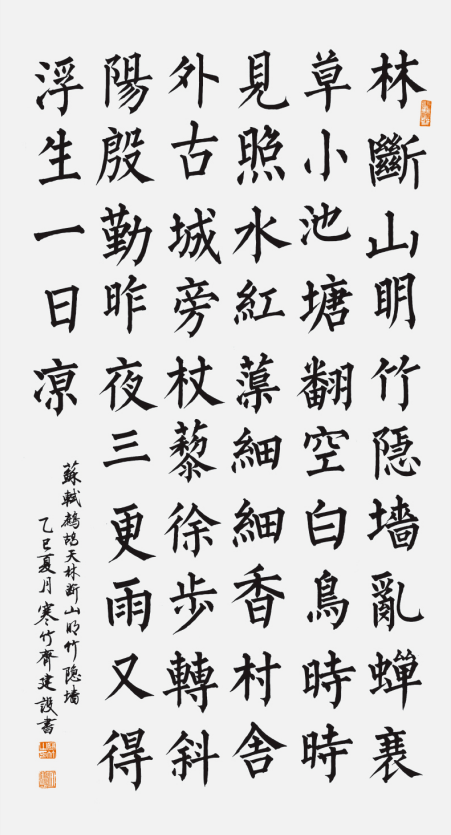 林斷山明竹隱墻亂蟬衰
草小池塘翻空白鳥時時
見照水紅蕖細細香村舍
外古城旁杖藜徐步轉斜
陽殷勤昨夜三更雨又得
浮生一日凉
蘇軾鹧鸪天林断山明竹隐墙
乙巳夏月寒竹齊建設書